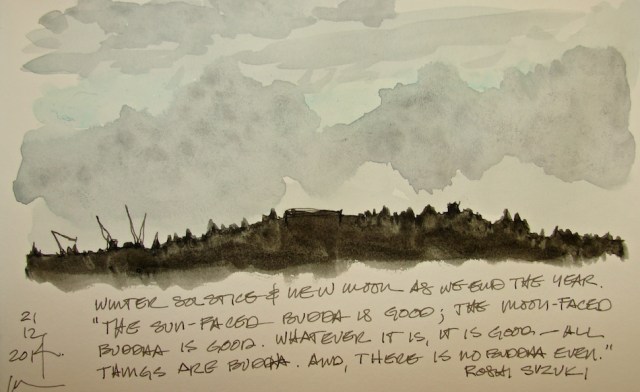 WINTER SOLSTICE & NEW MOON AS WE END THE YEAR.
"THE SUN-FACED BUDDA IS GOOD; THE MOON-FACED
BUDDHA IS GOOD. WHATEVER IT IS, IT IS GOOD — ALL
THINGS ARE BUDDA. AND, THERE IS NO BUDDHA EVEN."
ROSHI SUZUKI
21
12
2014